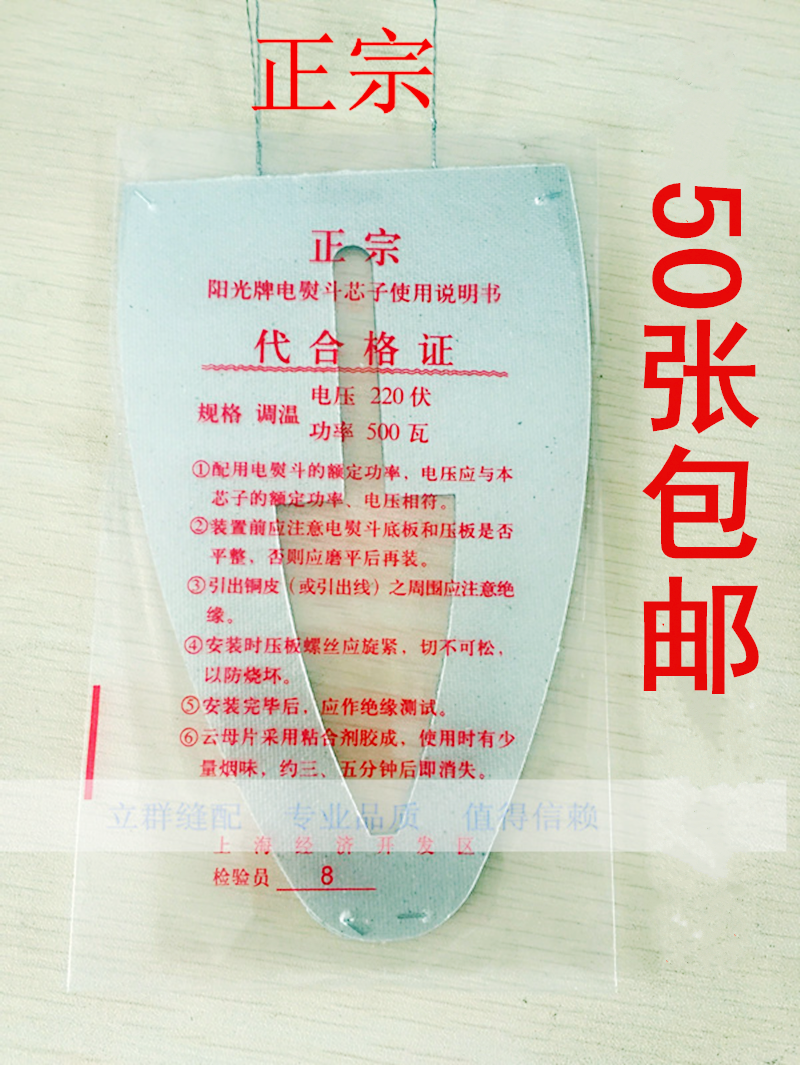 正宗
50张包邮
正宗
阳光牌电熨斗芯子使用说明书
代合格证
规格 调温
电压 220伏
功率 500瓦
①配用电熨斗的额定功率，电压应与本
芯子的额定功率、电压相符。
②装置前应注意电熨斗底板和压板是否
平整，否则应磨平后再装。
③引出铜皮（或引出线）之周围应注意绝
缘。
④安装时压板螺丝应旋紧，切不可松，
以防烧坏。
⑤安装完毕后，应作绝缘测试。
⑥云母片采用粘合剂胶成，使用时有少
量烟味，约三、五分钟后即消失。
立群缝配 专业品质 值得信赖
上海经济开发区
检验员 8